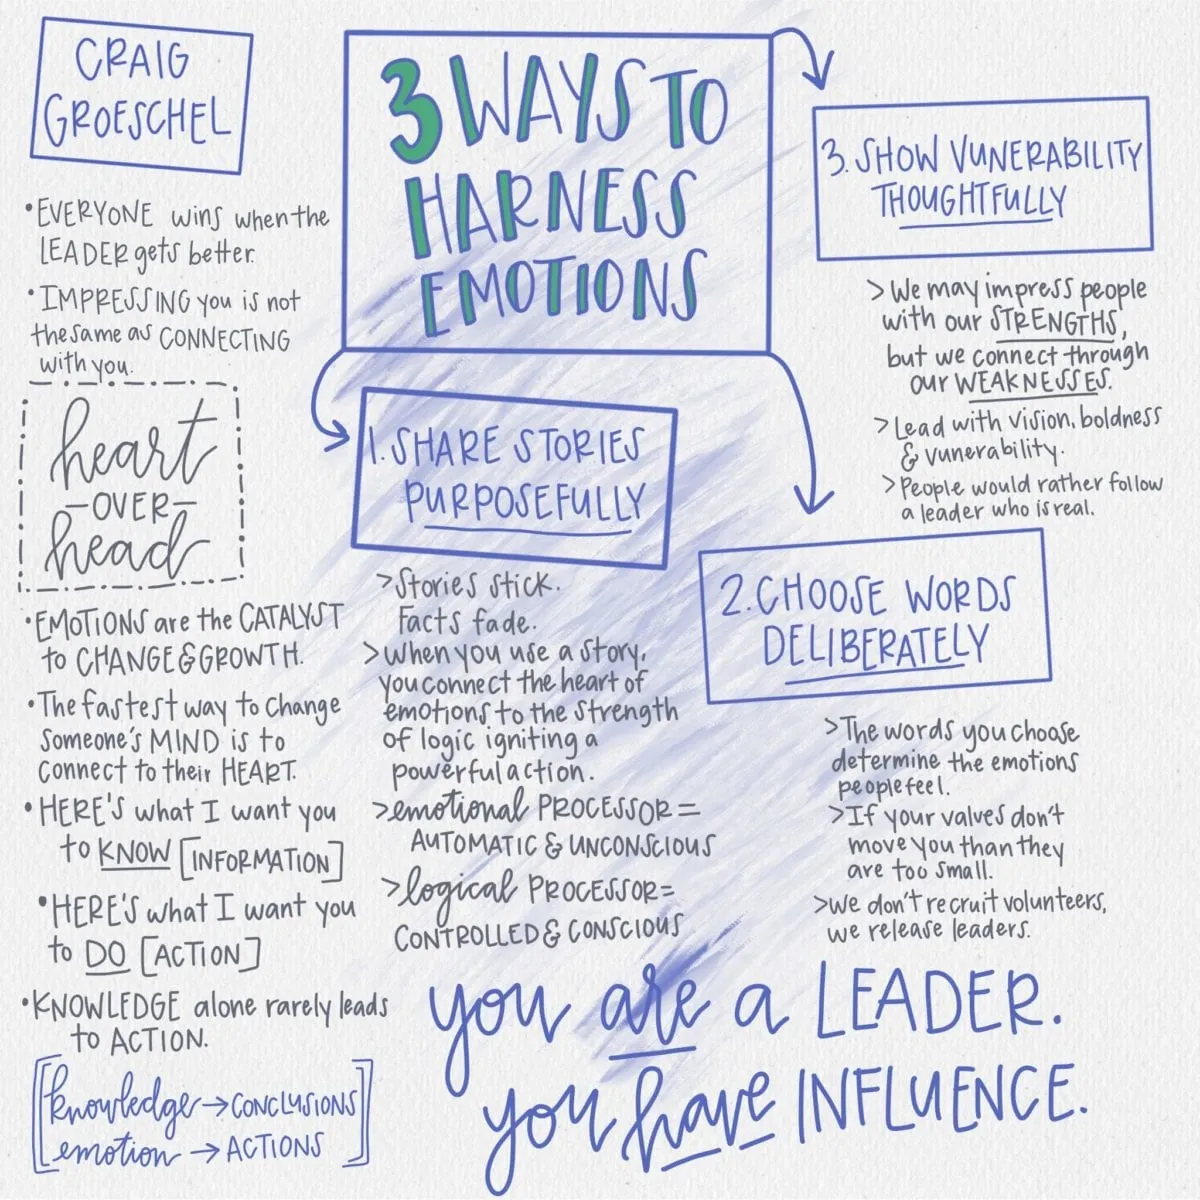 CRAIG
GROESCHEL
• EVERYONE wins when the
LEADER gets better.
• IMPRESSING you is not
the same as CONNECTING
with you.
heart
-OVER-
head
• EMOTIONS are the CATALYST
to CHANGE & GROWTH.
• The fastest way to change
someone's MIND is to
connect to their HEART.
• HERE'S what I want you
to KNOW [INFORMATION]
• HERE'S what I want you
to DO [ACTION]
• KNOWLEDGE alone rarely leads
to ACTION.
[knowledge → CONCLUSIONS
emotion → ACTIONS]
3 WAYS TO
HARNESS
EMOTIONS
1. SHARE STORIES
PURPOSEFULLY
> Stories stick.
Facts fade.
> When you use a story,
you connect the heart of
emotions to the strength
of logic igniting a
powerful action.
> emotional PROCESSOR =
AUTOMATIC & UNCONSCIOUS
> logical PROCESSOR =
CONTROLLED & CONSCIOUS
2. CHOOSE WORDS
DELIBERATELY
> The words you choose
determine the emotions
people feel.
> If your values don't
move you than they
are too small.
> We don't recruit volunteers,
we release leaders.
3. SHOW VUNERABILITY
THOUGHTFULLY
> We may impress people
with our STRENGTHS,
but we connect through
our WEAKNESSES.
> Lead with vision, boldness
& vunerability.
> People would rather follow
a leader who is real.
you are a LEADER.
you have INFLUENCE.